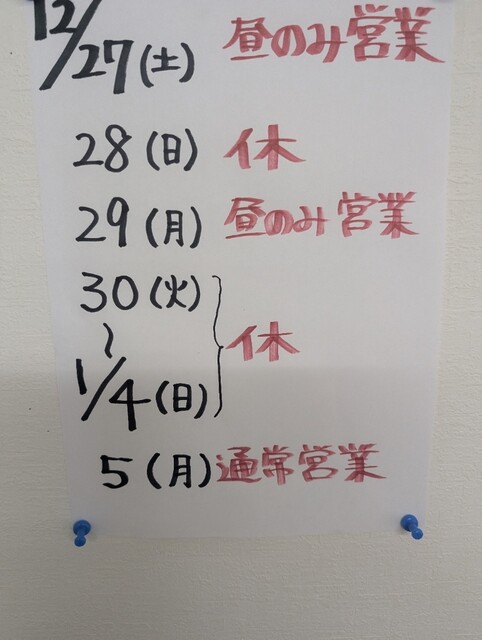 12/27(土) 昼のみ営業
28(日) 休
29(月) 昼のみ営業
30(火)
〜 休
1/4(日)
5(月) 通常営業